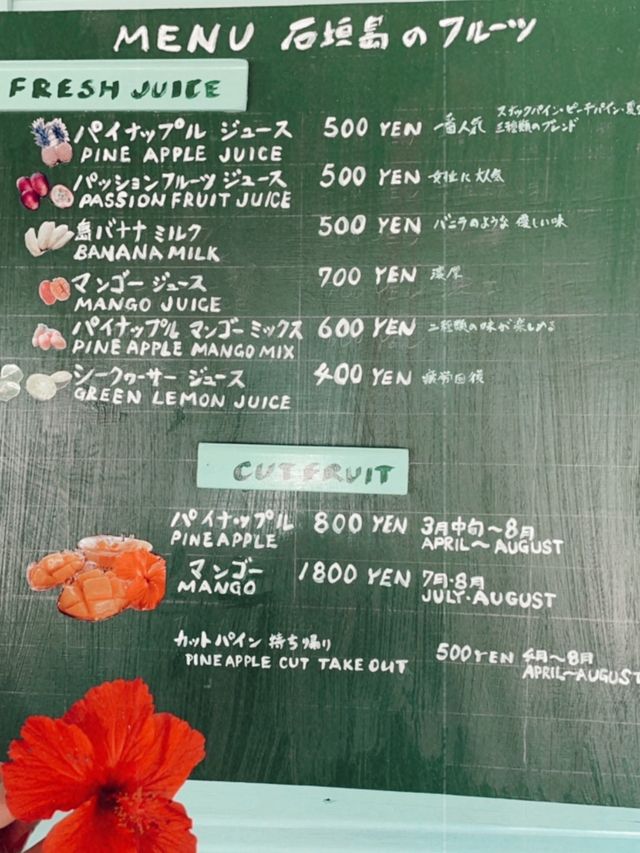 MENU 石垣島のフルーツ
FRESH JUICE
スナックパイン・ピーチパイン・
パイナップル ジュース 500 YEN 一番人気 三種類のブレンド
PINE APPLE JUICE
パッションフルーツ ジュース 500 YEN 女性に大人気
PASSION FRUIT JUICE
島バナナ ミルク 500 YEN バニラのような 優しい味
BANANA MILK
マンゴー ジュース 700 YEN 濃厚
MANGO JUICE
パイナップル マンゴー ミックス 600 YEN 二種類の味が楽しめる
PINE APPLE MANGO MIX
シークヮーサー ジュース 400 YEN 疲労回復
GREEN LEMON JUICE
CUT FRUIT
パイナップル 800 YEN 3月中旬〜8月
PINEAPPLE APRIL〜AUGUST
マンゴー 1800 YEN 7月・8月
MANGO JULY・AUGUST
カットパイン 持ち帰り 500 YEN 4月〜8月
PINEAPPLE CUT TAKE OUT APRIL〜AUGUST